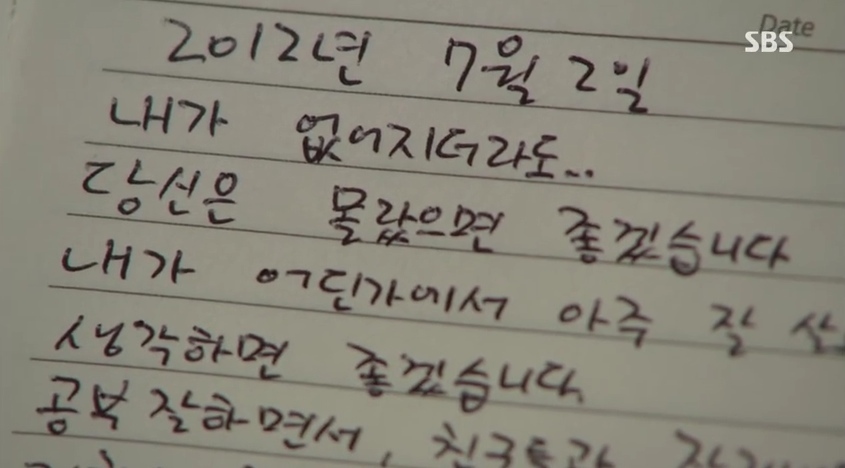 Date
SBS
2012년 7월 2일
내가 없어지더라도...
당신은 몰랐으면 좋겠습니다
내가 어딘가에서 아주 잘
생각하면 좋겠습니다
공부 잘하면서,